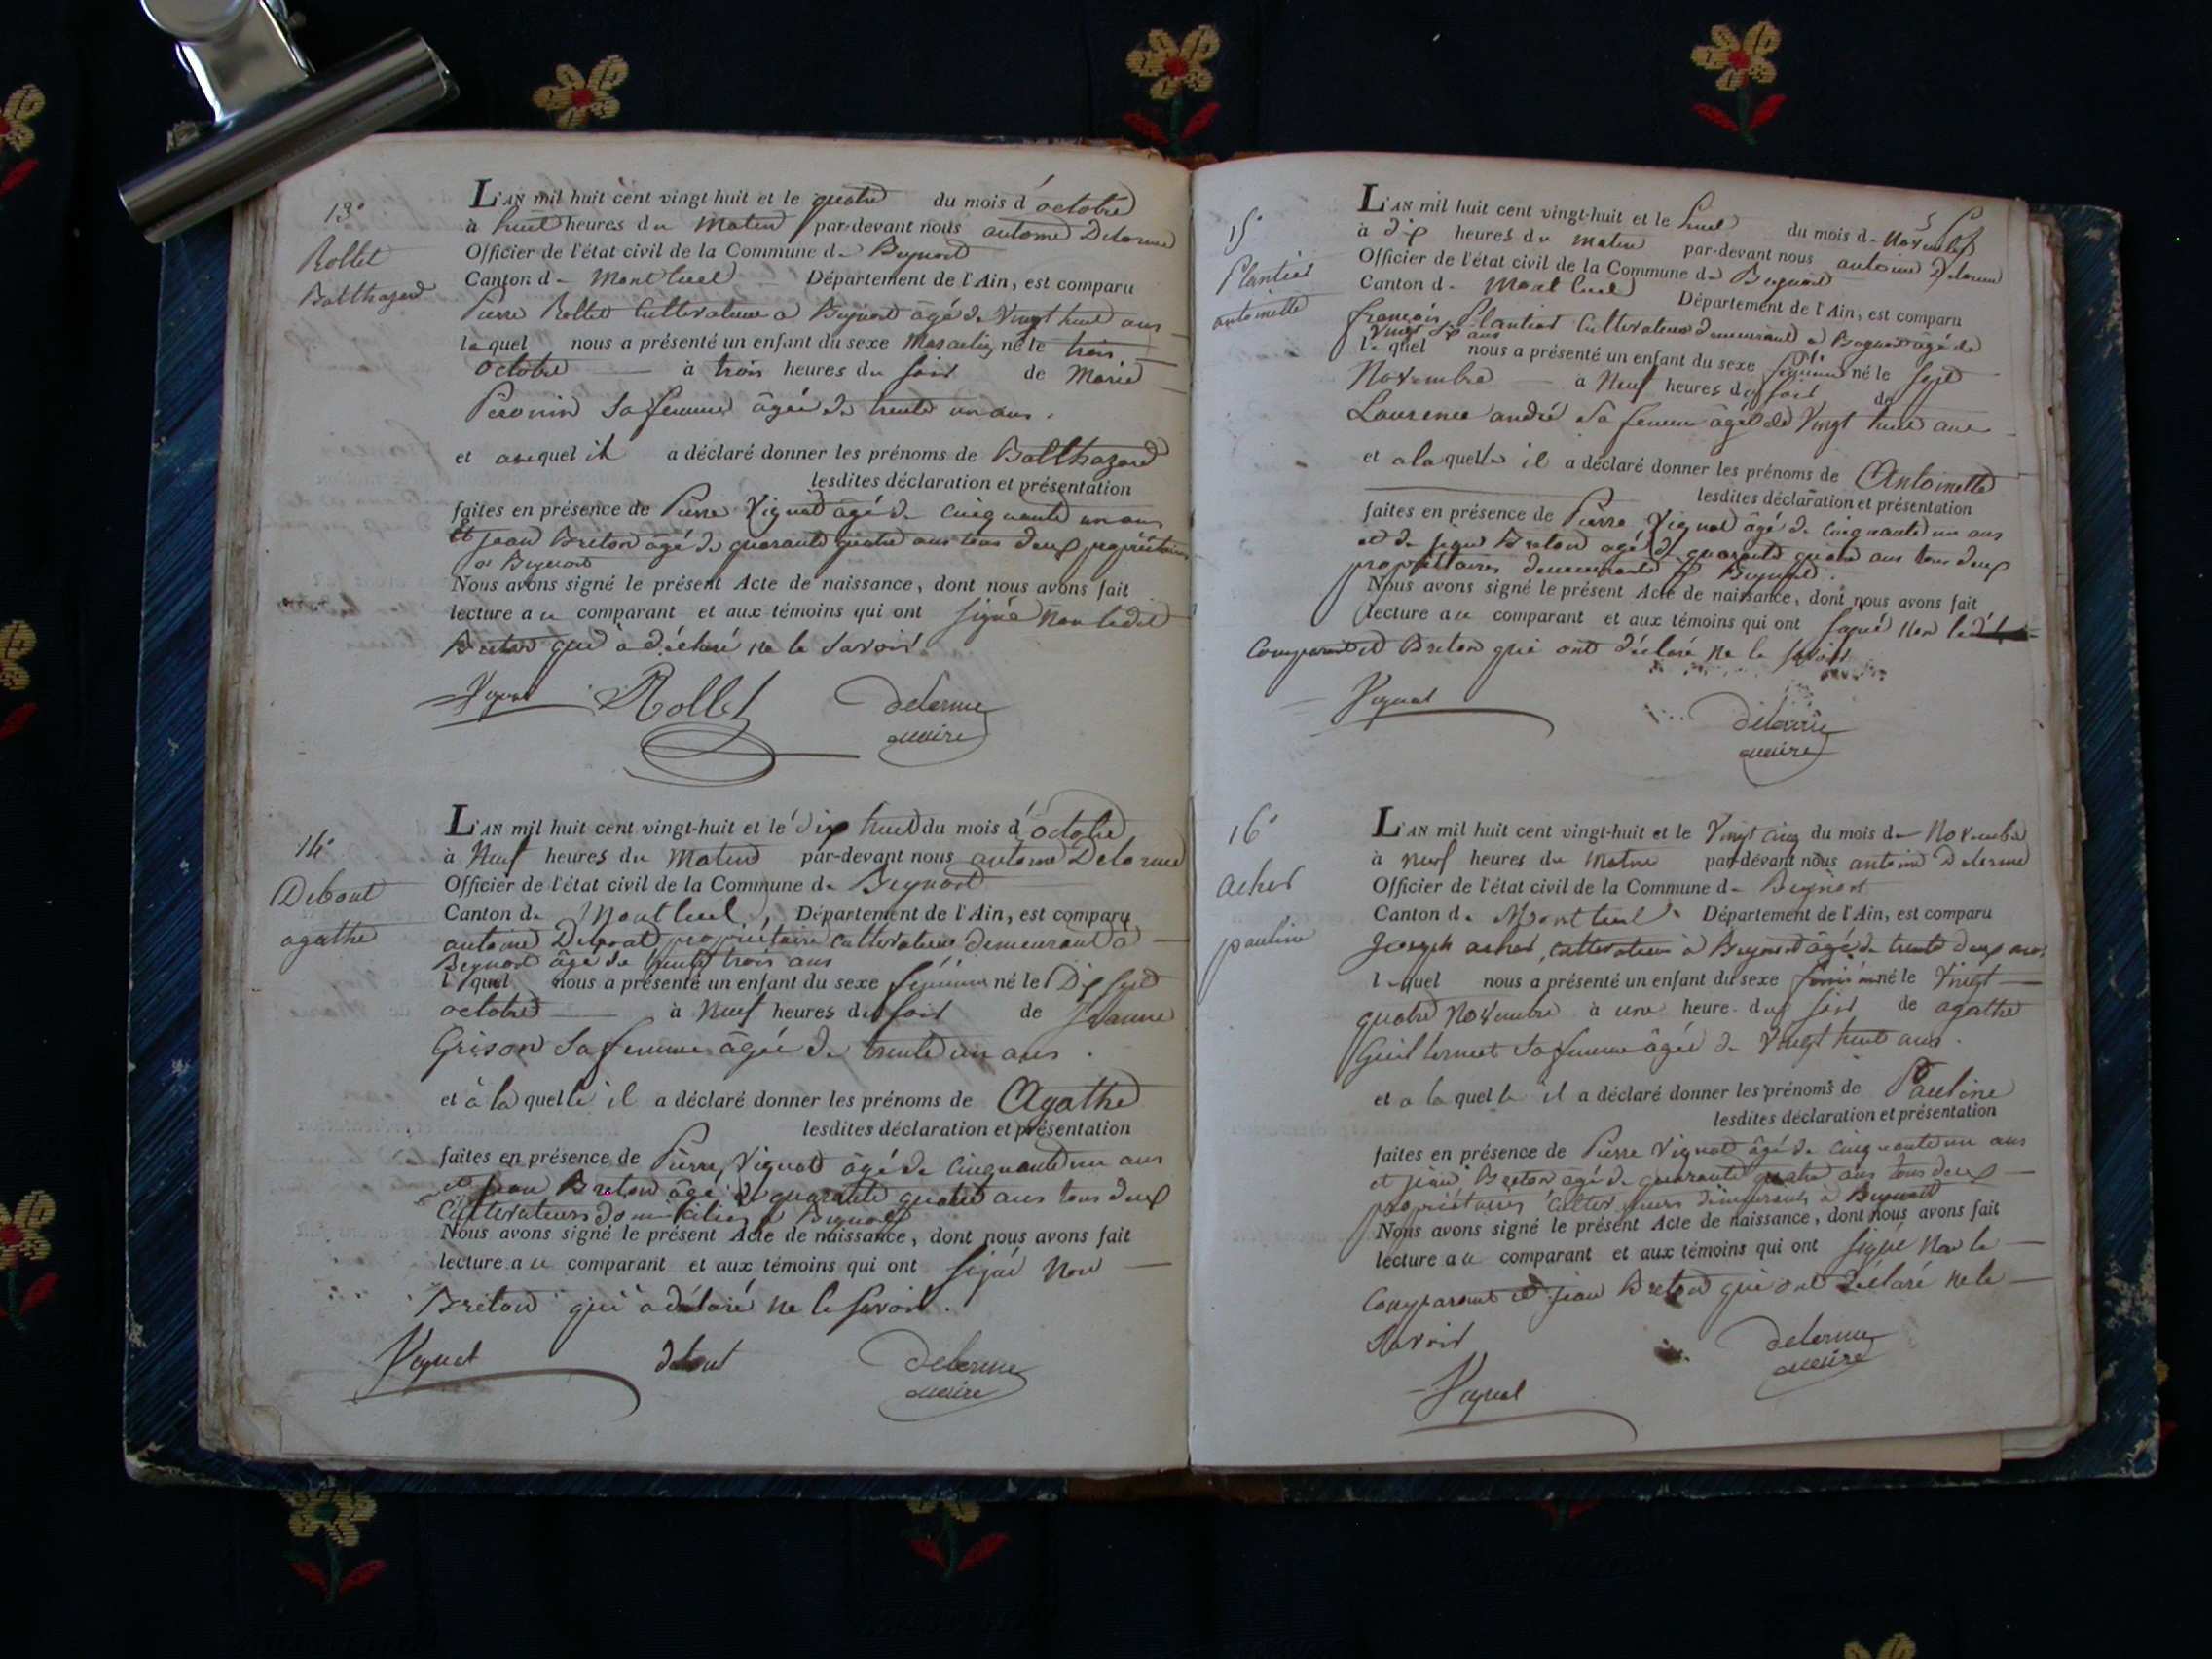 13°
Rollet
Balthazard
L'AN mil huit cent vingt huit et le quatre du mois d'octobre
à huit heures du matin par-devant nous antoine Delorme
Officier de l'état civil de la Commune de Beynost
Canton de Montluel Département de l'Ain, est comparu
Pierre Rollet Cultivateur a Beynost âgé de Vingt huit ans
lequel nous a présenté un enfant du sexe Masculin né le trois
octobre à trois heures du soir de Marie
Peronin sa femme âgée de trente un ans.
et auquel il a déclaré donner les prénoms de Balthazard
lesdites déclaration et présentation
faites en présence de Pierre Vignat âgé de cinquante un ans
et jean Breton âgé de quarante quatre ans tous deux propriétaires
a Beynost
Nous avons signé le présent Acte de naissance, dont nous avons fait
lecture au comparant et aux témoins qui ont signé Non ledit
Breton qui à déclaré ne le savoir
Vignat Rollet delorme
maire
14°
Debout
agathe
L'AN mil huit cent vingt-huit et le dix huit du mois d'octobre
à Neuf heures du Matin par-devant nous antoine Delorme
Officier de l'état civil de la Commune de Beynost
Canton de Montluel, Département de l'Ain, est comparu
antoine Debout propriétaire cultivateur demeurant à
Beynost âgé de trente trois ans
lequel nous a présenté un enfant du sexe féminin né le Dix sept
octobre à Neuf heures du soir de Jeanne
Grison sa femme âgée de trente un ans.
et à laquelle il a déclaré donner les prénoms de Agathe
lesdites déclaration et présentation
faites en présence de Pierre Vignat âgé de cinquante un ans
et jean Breton âgé de quarante quatre ans tous deux
Cultivateurs domiciliés a Beynost
Nous avons signé le présent Acte de naissance, dont nous avons fait
lecture au comparant et aux témoins qui ont signé Non
Breton qui a déclaré ne le savoir.
Vignat debout delorme
maire
15°
Plantier
antoinette
L'AN mil huit cent vingt-huit et le huit du mois de Novembre
à dix heures du matin par-devant nous antoine Delorme
Officier de l'état civil de la Commune de Beynost
Canton de Montluel Département de l'Ain, est comparu
françois Plantier Cultivateur demeurant a Beynost âgé de
Vingt six ans
lequel nous a présenté un enfant du sexe féminin né le sept
Novembre à Neuf heures du soir de
Laurence andré sa femme âgée de Vingt huit ans
et a laquelle il a déclaré donner les prénoms de Antoinette
lesdites déclaration et présentation
faites en présence de Pierre Vignat âgé de cinquante un ans
et de jean Breton agé de quarante quatre ans tous deux
propriétaires demeurants a Beynost.
Nous avons signé le présent Acte de naissance, dont nous avons fait
lecture au comparant et aux témoins qui ont signé Non le
Comparant et Breton qui ont déclaré ne le savoir
Vignat delorme
maire
16°
acher
pauline
L'AN mil huit cent vingt-huit et le Vingt cinq du mois de Novembre
à neuf heures du matin par-devant nous antoine Delorme
Officier de l'état civil de la Commune de Beynost
Canton de Montluel Département de l'Ain, est comparu
Joseph acher, cultivateur à Beynost âgé de trente deux ans
lequel nous a présenté un enfant du sexe féminin né le Vingt
quatre Novembre à une heure du soir de agathe
Guillermet sa femme âgée de Vingt huit ans.
et a laquelle il a déclaré donner les prénoms de Pauline
lesdites déclaration et présentation
faites en présence de Pierre Vignat âgé de cinquante un ans
et jean Breton âgé de quarante quatre ans tous deux
propriétaires Cultivateurs demeurants à Beynost
Nous avons signé le présent Acte de naissance, dont nous avons fait
lecture au comparant et aux témoins qui ont signé Non le
Comparant et jean Breton qui ont déclaré ne le
Savoir
delorme
maire
Vignat